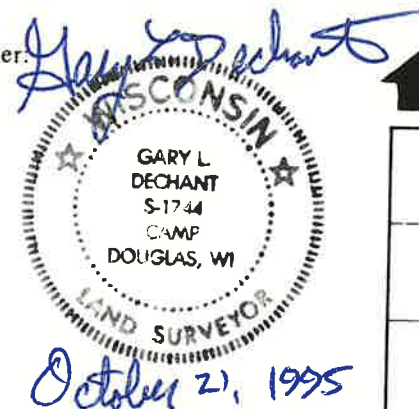 er: Gary L Dechant
WISCONSIN
GARY L.
DECHANT
S-1744
CAMP
DOUGLAS, WI
LAND SURVEYOR
October 21, 1995